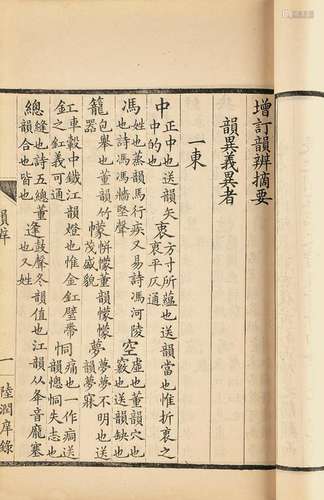 增訂韻辨摘要
韻異義異者
一東
中正中也送韻矢中的也衷方寸所蘊也送韻當也惟折衷之衷平仄通
馮姓也蒸韻馬行疾又易詩馮河陵也詩馮馮牆堅聲空虛也董韻穴也竅也送韻缺也
籠包舉也董韻竹器幪帡幪董韻幪幪茂盛貌夢夢夢不明也送韻夢寐
釭車轂中鐵江韻燈也惟金釭壁帶之釭義可通恫痛也一作痌送韻憁恫失志也
總縫也詩五總董韻合也皆也逢鼓聲冬韻值也江韻从夆音龐塞也又姓
韻辨 一 陸潤庠錄